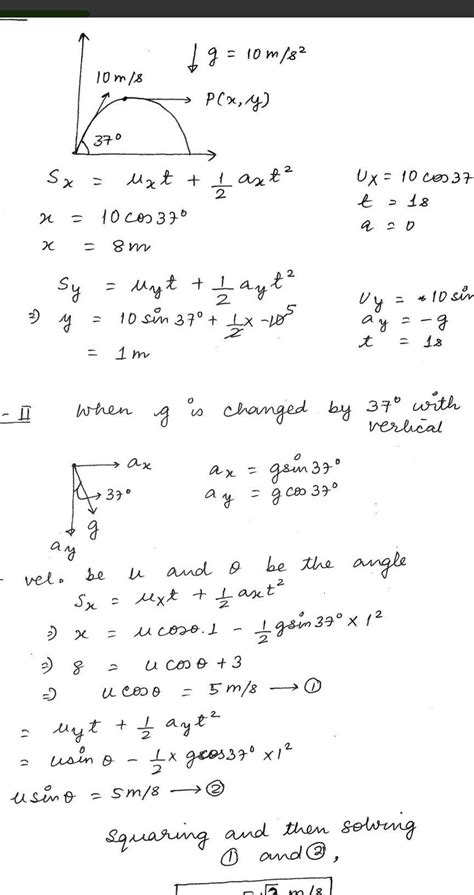 ↓ g = 10 m/s²
10 m/s
P(x, y)
37°
Sx = uxt + 1/2 axt²
Ux = 10 cos 37
x = 10 cos 37°
t = 1s
x = 8m
a = 0
Sy = uyt + 1/2 ayt²
Uy = +10 sin
⇒ y = 10 sin 37° + 1/2 x -10 5
ay = -g
= 1m
t = 1s
- II when g is changed by 37° with
vertical
ax
ax = g sin 37°
37°
ay = g cos 37°
g
ay
- vel. be u and θ be the angle
Sx = uxt + 1/2 axt²
⇒ x = u cosθ.1 - 1/2 g sin 37° × 1²
⇒ 8 = u cosθ + 3
⇒ u cosθ = 5 m/s → ①
= uyt + 1/2 ayt²
= u sin θ - 1/2 × g cos 37° × 1²
u sin θ = 5 m/s → ②
squaring and then solving
① and ②,